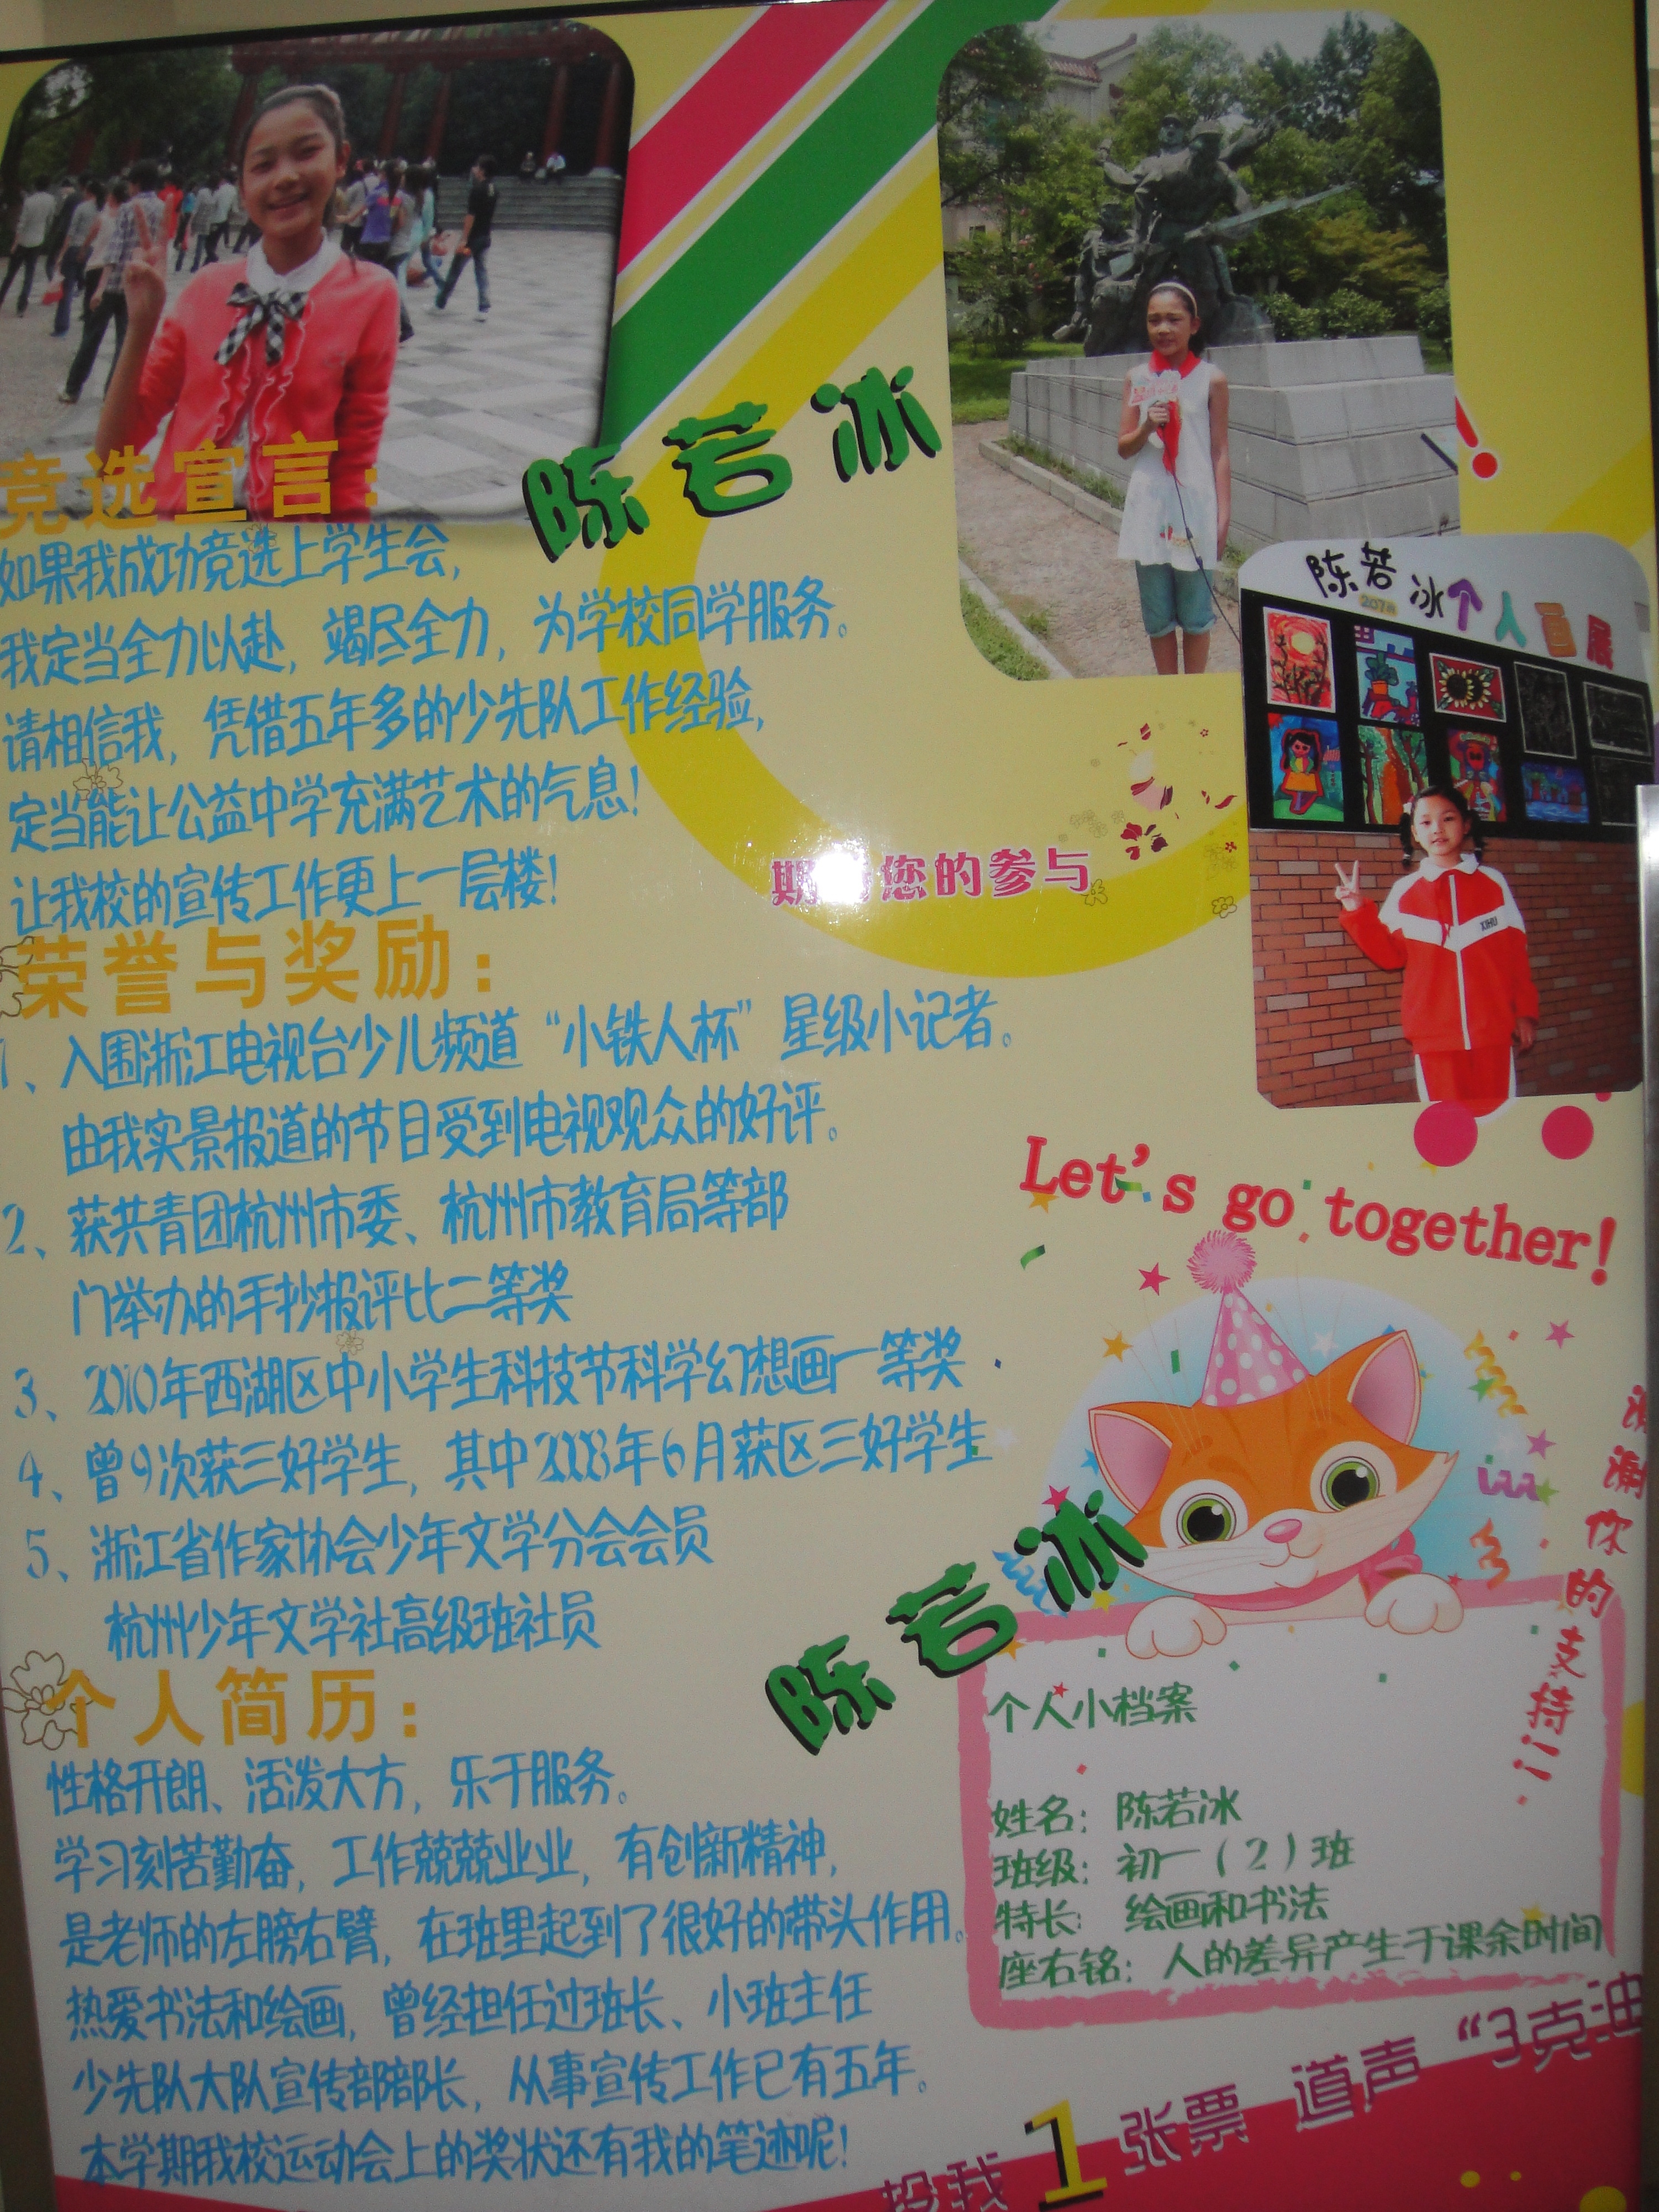 陈若冰
竞选宣言：
如果我成功竞选上学生会，
我定当全力以赴，竭尽全力，为学校同学服务。
请相信我，凭借五年多的少先队工作经验，
定当能让公益中学充满艺术的气息！
让我校的宣传工作更上一层楼！
陈若冰个人画展
207班
XIHU
您的参与
荣誉与奖励：
1、入围浙江电视台少儿频道“小铁人杯”星级小记者。
由我实景报道的节目受到电视观众的好评。
2、获共青团杭州市委、杭州市教育局等部
门举办的手抄报评比二等奖
3、2010年西湖区中小学生科技节科学幻想画一等奖
4、曾9次获三好学生，其中2008年6月获区三好学生
5、浙江省作家协会少年文学分会会员
杭州少年文学社高级班社员
个人简历：
性格开朗、活泼大方，乐于服务。
学习刻苦勤奋，工作兢兢业业，有创新精神，
是老师的左膀右臂，在班里起到了很好的带头作用。
热爱书法和绘画，曾经担任过班长、小班主任
少先队大队宣传部部长，从事宣传工作已有五年。
本学期我校运动会上的奖状还有我的笔迹呢！
Let's go together!
谢谢你的支持！！
陈若冰
个人小档案
姓名：陈若冰
班级：初一（2）班
特长：绘画和书法
座右铭：人的差异产生于课余时间
投我1张票 道声“3克油